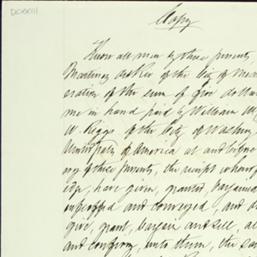 Copy
Know all men by these presents,
Martinez of the City of
eration of the sum of five dollars
me in hand paid by William W
W. Riggs of the City of Washing
United States of America at and before
ing of these presents, the receipt whereof
edge, have given, granted, bargained
enfeoffed and conveyed, and do
give, grant, bargain and sell, al
and confirm, unto them, the sa